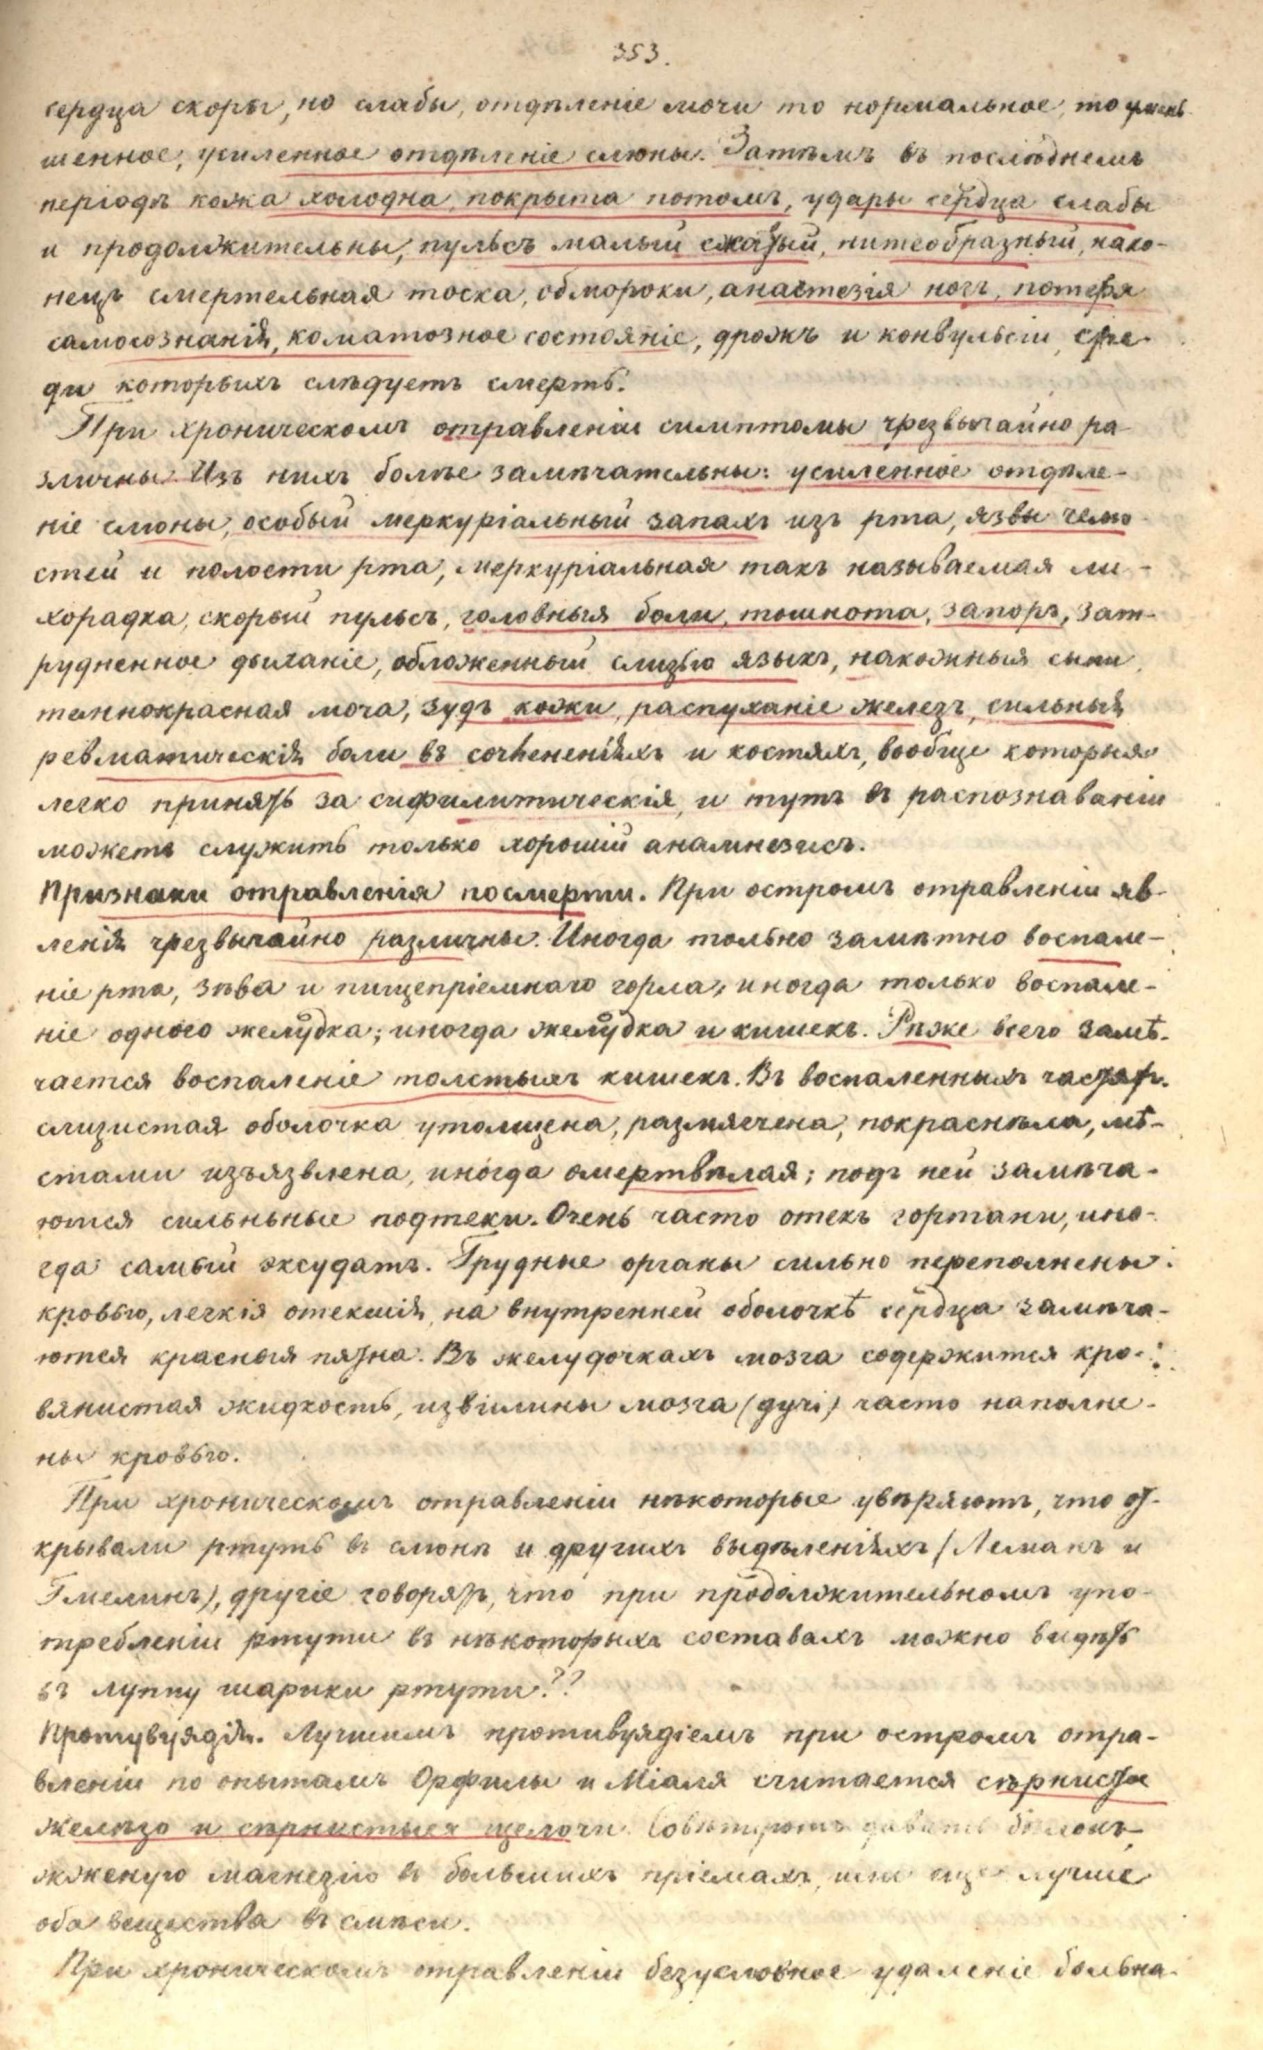 353.
сердца скоры, но слабы, отдѣленіе мочи то нормальное, то умень-
шенное, усиленное отдѣленіе слюны. Затѣмъ въ послѣднемъ
періодѣ кожа холодна, покрыта потомъ, удары сердца слабы
и продолжительны, пульсъ малый сжатый, нитеобразный, нако-
нецъ смертельная тоска, обмороки, анастезія ногъ, потеря
самосознанія, коматозное состояніе, дрожь и конвульсіи, сре-
ди которыхъ слѣдуетъ смерть.
При хроническомъ отравленіи симптомы чрезвычайно ра
зличны. Изъ нихъ болѣе замѣчательны: усиленное отдѣле-
ніе слюны, особый меркуріальный запахъ изъ рта, язвы челю
стей и полости рта, меркуріальная такъ называемая ли-
хорадка, скорый пульсъ, головныя боли, тошнота, запоръ, зат-
рудненное дыханіе, обложенный слизью языкъ, накожныя сыпи,
темнокрасная моча, зудъ кожи, распуханіе железъ, сильныя
ревматическія боли въ сочлененіяхъ и костяхъ, вообще которыя
легко принять за сифилитическія, и тутъ въ распознаваніи
можетъ служить только хорошій анамнезисъ.
Признаки отравленія посмерти. При остромъ отравленіи яв-
ленія чрезвычайно различны. Иногда только замѣтно воспале-
ніе рта, зѣва и пищепріемнаго горла, иногда только воспале-
ніе одного желудка; иногда желудка и кишекъ. Рѣже всего замѣ-
чается воспаленіе толстыхъ кишекъ. Въ воспаленныхъ частях.
слизистая оболочка утолщена, размягчена, покраснѣла, мѣ-
стами изъязвлена, иногда омертвѣлая; подъ ней замѣча-
ются сильньные подтеки. Очень часто отекъ гортани, ино-
гда самый эксудатъ. Грудные органы сильно переполнены
кровью, легкія отекшія, на внутренней оболочкѣ сердца замѣча-
ются красныя пятна. Въ желудочкахъ мозга содержится кро-
вянистая жидкость, извилины мозга (дучі) часто наполне-
ны кровью.
При хроническомъ отравленіи нѣкоторые увѣряютъ, что от-
крывали ртуть въ слюнѣ и другихъ выдѣленіяхъ (Леманъ и
Гмелинъ), другіе говорятъ, что при продолжительномъ упо-
требленіи ртути въ нѣкоторыхъ составахъ можно видѣть
въ луппу шарики ртути??
Протувуядія. Лучшимъ противуядіемъ при остромъ отра-
вленіи по опытамъ Орфилы и Міаля считается сѣрнистое
желѣзо и сѣрнистыея щелочи. Совѣтуютъ давать бѣлокъ,
жженую магнезію въ большихъ пріемахъ, или еще лучше
оба вещества въ смѣси.
При хроническомъ отравленіи безусловное удаленіе больна-